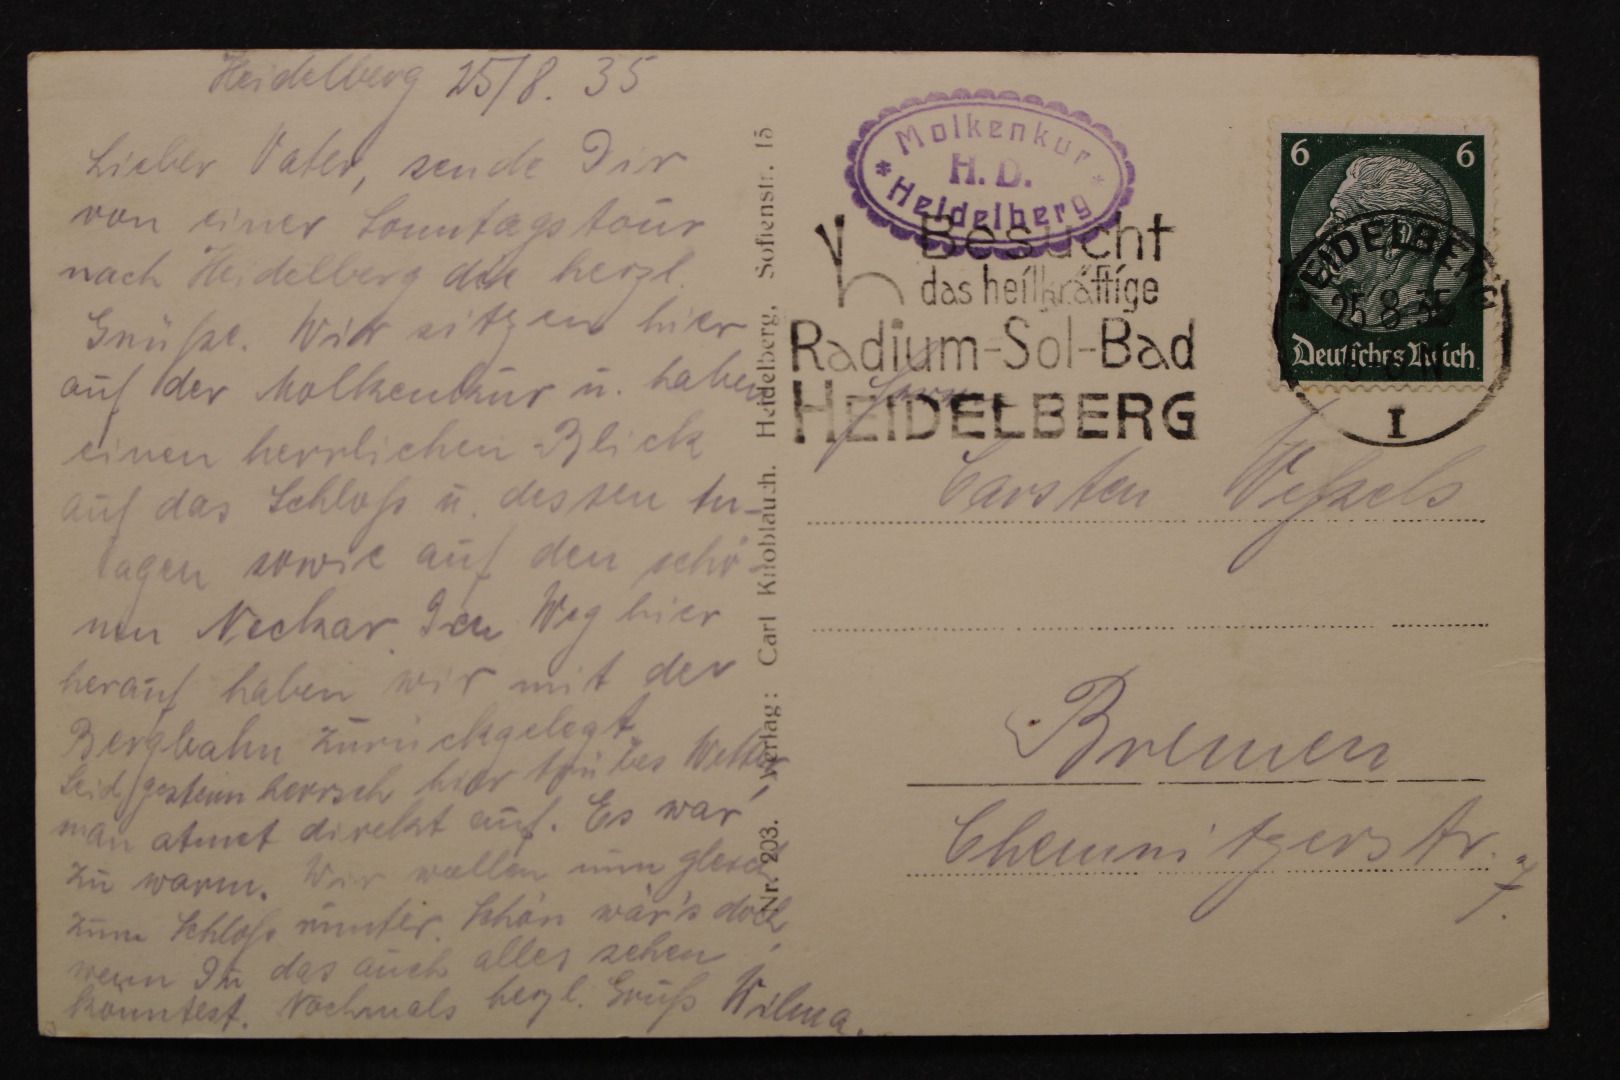 Heidelberg 25/8. 35
Lieber Vater, sende Dir
von einer Sonntagstour
nach Heidelberg die herzl.
Grüße. Wir sitzen hier
auf der Molkenkur u. haben
einen herrlichen Blick
auf das Schloß u. dessen An-
lagen sowie auf den schö-
nen Neckar. Den Weg hier
herauf haben wir mit der
Bergbahn zurückgelegt.
Seid gestern herrsch hier trübes Wetter,
man atmet direkt auf. Es war
zu warm. Wir wollen nun gleich
zum Schloß runter. Schön wär's doch,
wenn Du das auch alles sehen
könntest. Nochmals herzl. Gruß Wilma.
Nr. 203. Verlag: Carl Knoblauch, Heidelberg, Sofienstr. 15
Molkenkur
H. D.
Heidelberg
Besucht
das heilkräftige
Radium-Sol-Bad
HEIDELBERG
6 6
Deutsches Reich
HEIDELBERG
25.8.35
1
Herrn
Carsten Weßels
Bremen
Chemnitzerstr. 7.